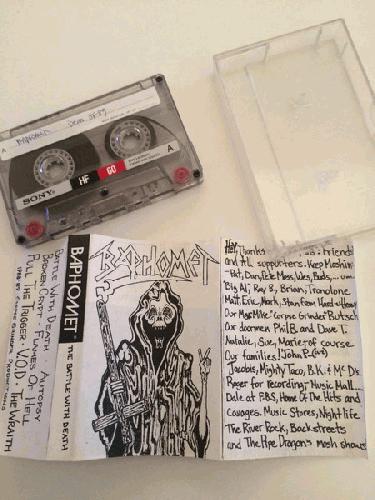 BAPHOMET
Demo
A
SONY
HF
60
A
BATTLE WITH DEATH AUTOPSY
BROKEN CRYPT FLAMES OF HELL
PULL THE TRIGGER · V.O.D. THE WRAITH
BAPHOMET
THE BATTLE WITH DEATH
BAPHOMET
Thanks friends
and ALL supporters. Keep Moshin
Pat, Dan, Mess, Wes, Buds,
Big Al, Ray B, Brian, Tranolone
Matt, Eric, Mark, Stan,
Our Man Mike "Corpse Grinder" Butsch
Our doormen Phil B. and Dave T.
Natalie, Sue, Marie, of course
Our families! John P. (art)
Jacobis, Mighty Taco, B.K. & Mc D's
Roger for recording, Music Mall
Dale at EBS, Home Of The Hits and
Cavages. Music Stores, Nightlife
The River Rock, Backstreets
and The Pipe Dragons mosh shows